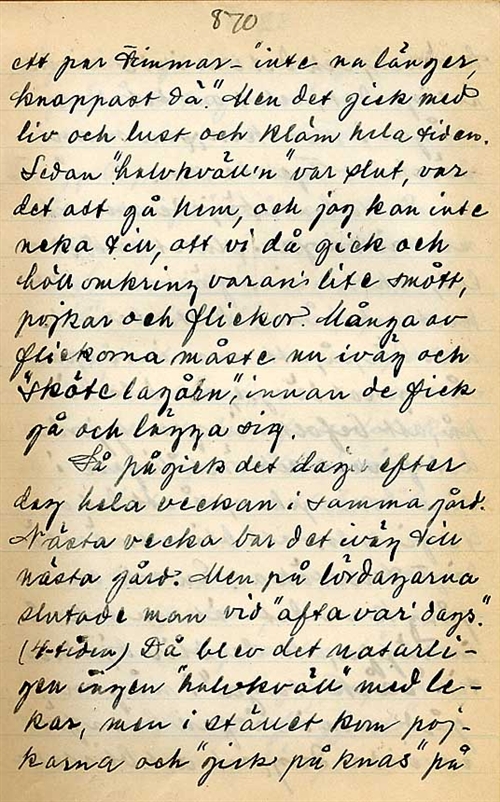 870
ett par timmar – "inte nu länger,
knappast då." Men det gick med
liv och lust och kläm hela tiden.
Sedan "halvkväll'n" var slut, var
det att gå hem, och jag kan inte
neka till, att vi då gick och
höll omkring varan's lite smått,
pojkar och flickor. Många av
flickorna måste nu iväg och
"sköte lagåln", innan de fick
gå och lägga sig.
Så pågick det dag efter
dag hela veckan i samma gård.
Nästa vecka bar det iväg till
nästa gård. Men på lördagarna
slutade man vid "aftavar'dags."
(4-tiden) Då blev det naturli-
gen ingen "halvkväll" med le-
kar, men i stället kom poj-
karna och "gick på knas" på